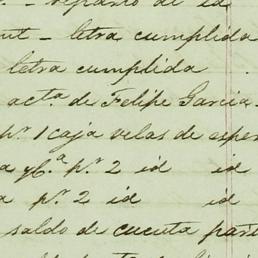 reparto de id
letra cumplida
letra cumplida
acta. de Felipe Garcia.
pr. 1 caja velas de esper
pr. 2 id id
pr. 2 id id
saldo de cuenta part